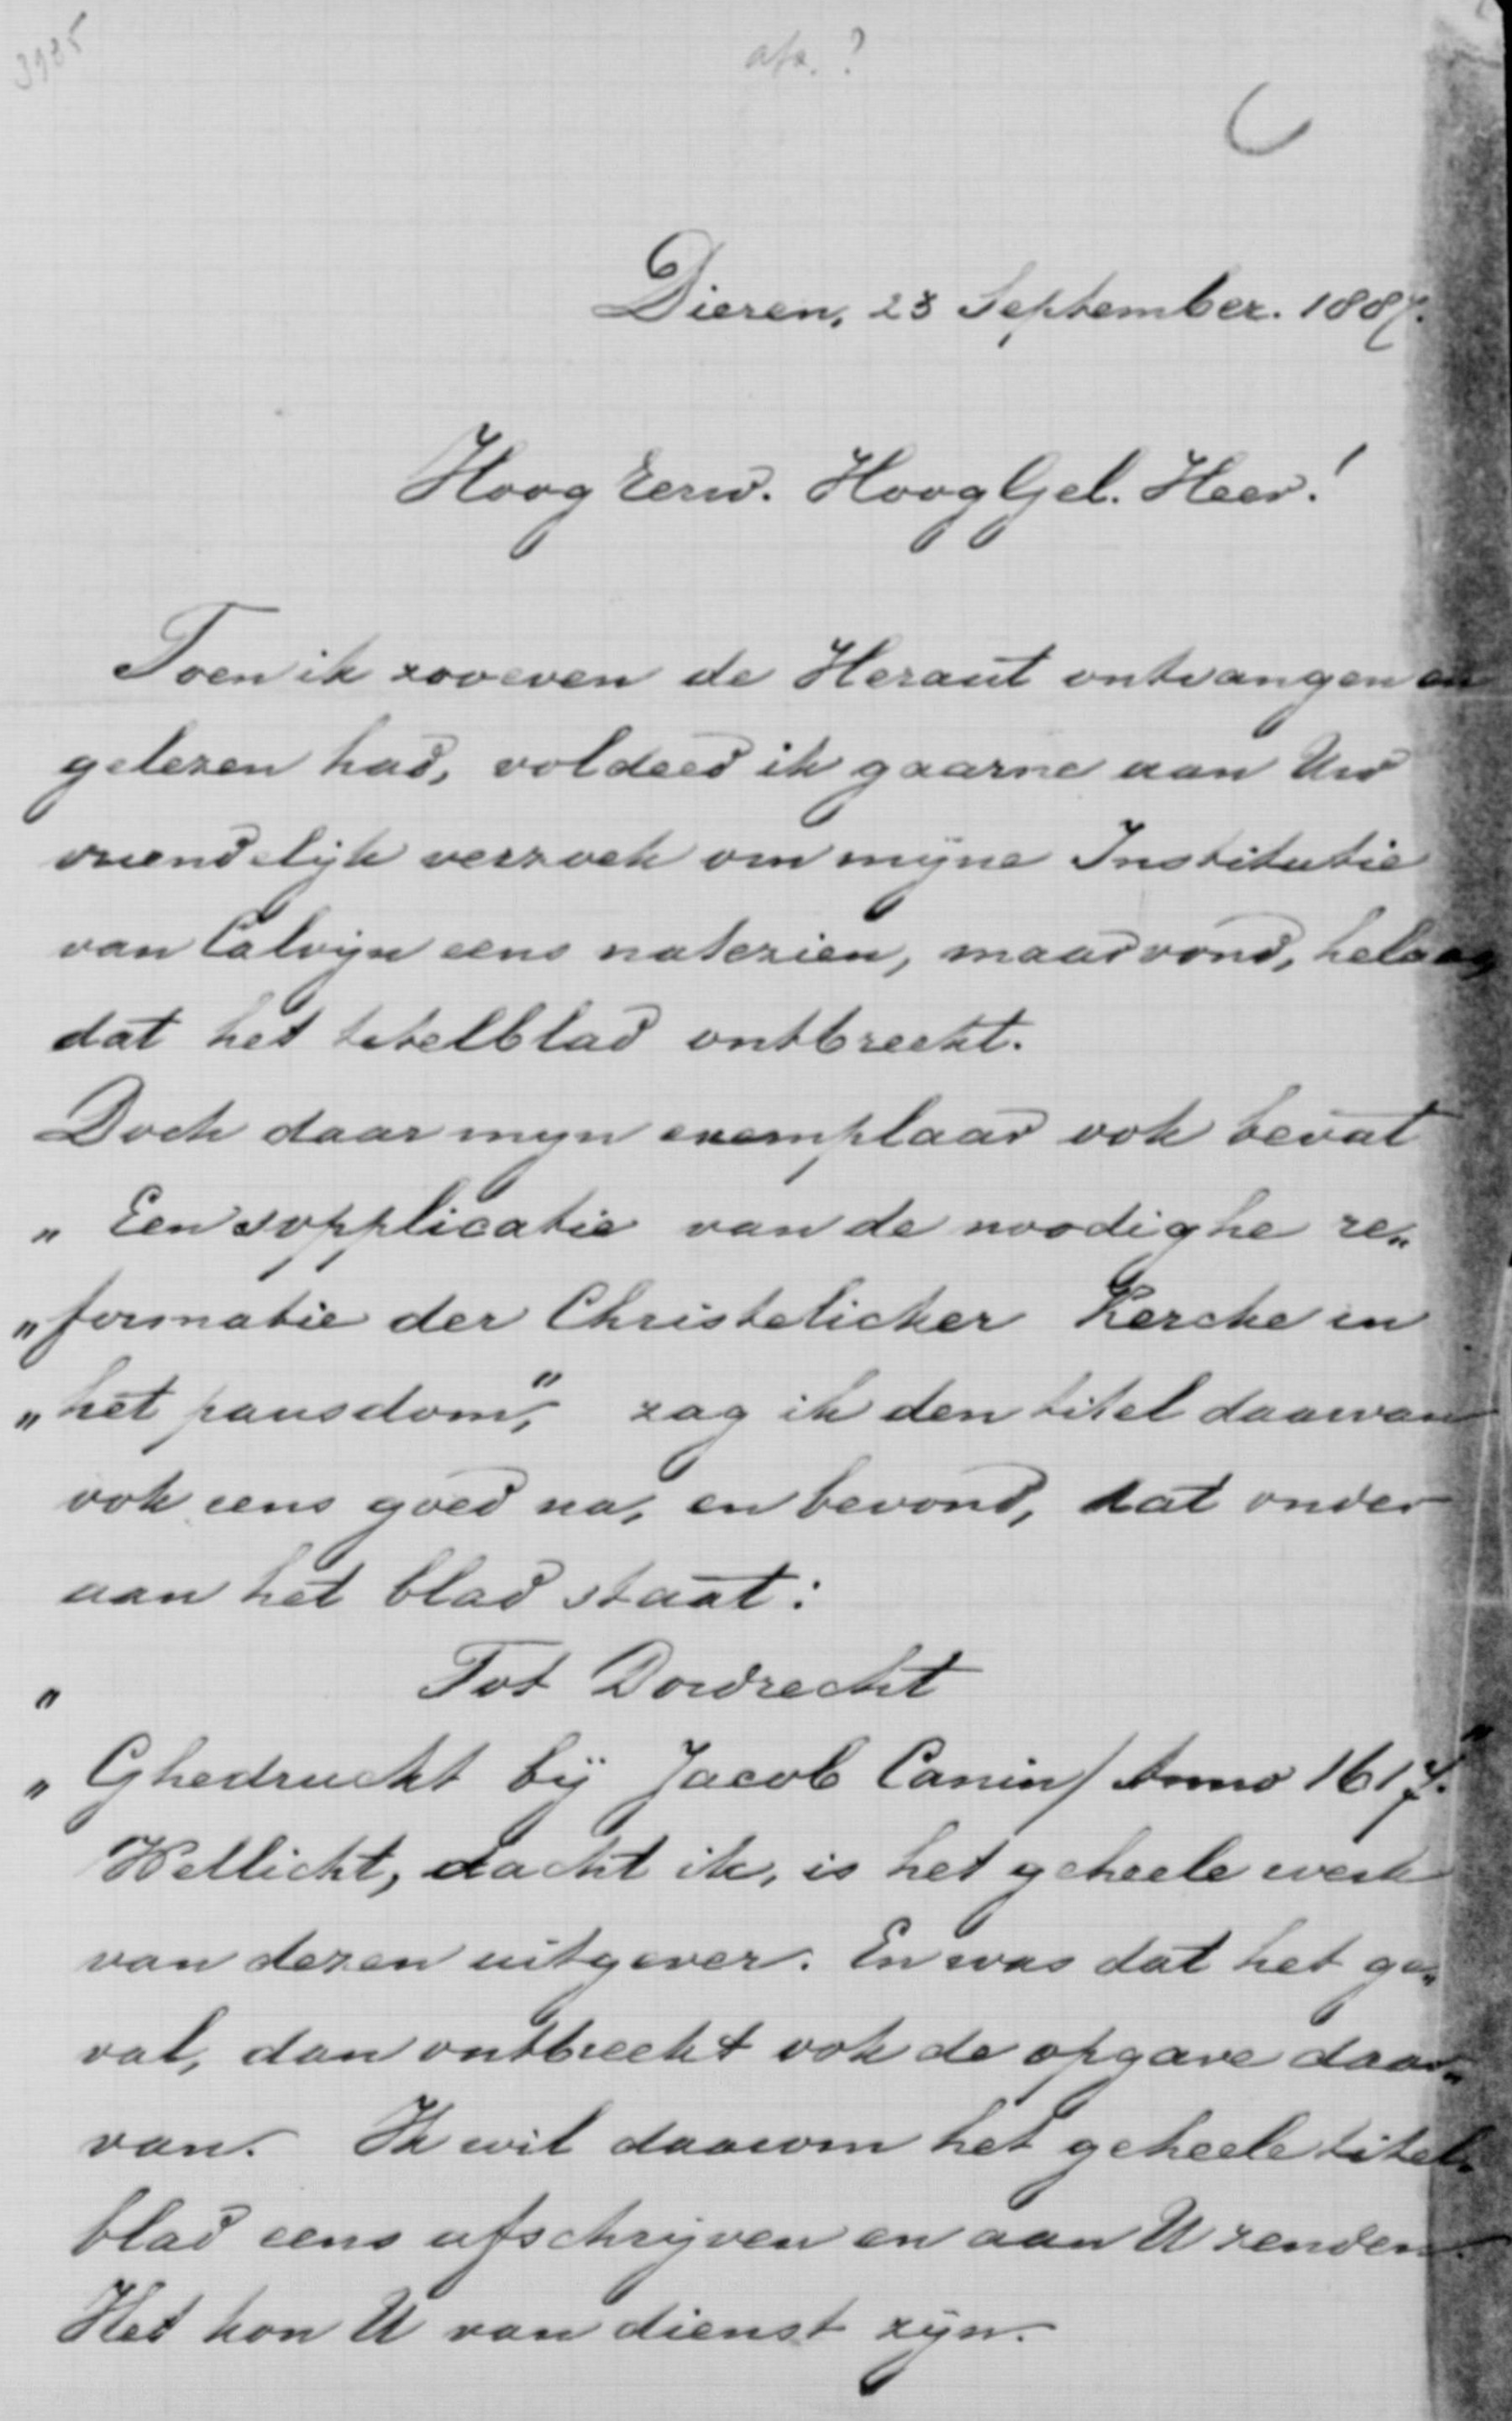 3985
afz. ?
Dieren, 23 September. 1887.
Hoog Eerw. Hoog Gel. Heer!
Toen ik zooeven de Heraut ontvangen en
gelezen had, voldeed ik gaarne aan Uw
vriendelijk verzoek om mijne Institutie
van Calvijn eens natezien, maar vond, helaas,
dat het titelblad ontbreekt.
Doch daar mijn exemplaar ook bevat
„ Een supplicatie van de noodighe re„
„ formatie der Christelicker Kercke in
„ het pausdom," zag ik den titel daarvan
ook eens goed na, en bevond, dat onder
aan het blad staat:
„ Tot Dordrecht
„ Ghedruckt bij Jacob Canin/ Anno 1617."
Wellicht, dacht ik, is het geheele werk
van dezen uitgever. En was dat het ge„
val, dan ontbreekt ook de opgave daar„
van. Ik wil daarom het geheele titel„
blad eens afschrijven en aan U zenden.
Het kon U van dienst zijn.